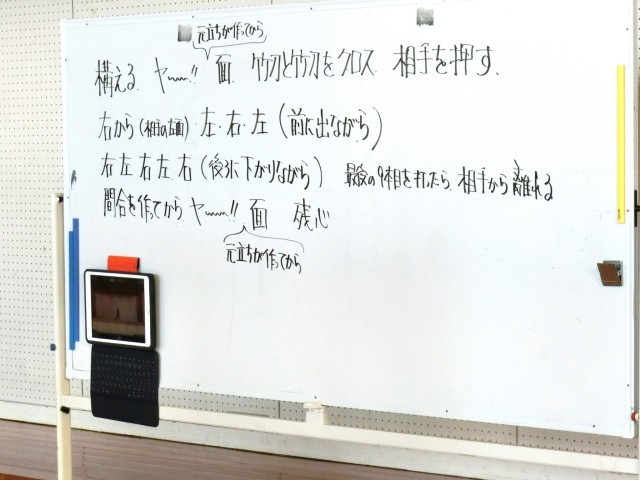 元立ちが作ってから
構える、ヤーーー!! 面 竹刀と竹刀をクロス 相手を押す、
右から(相手の左面) 左・右・左(前に出ながら)
右左右左右(後ろに下がりながら) 最後の9本目を打ったら、相手から離れる
間合を作ってから ヤーーー!! 面 残心
元立ちが作ってから